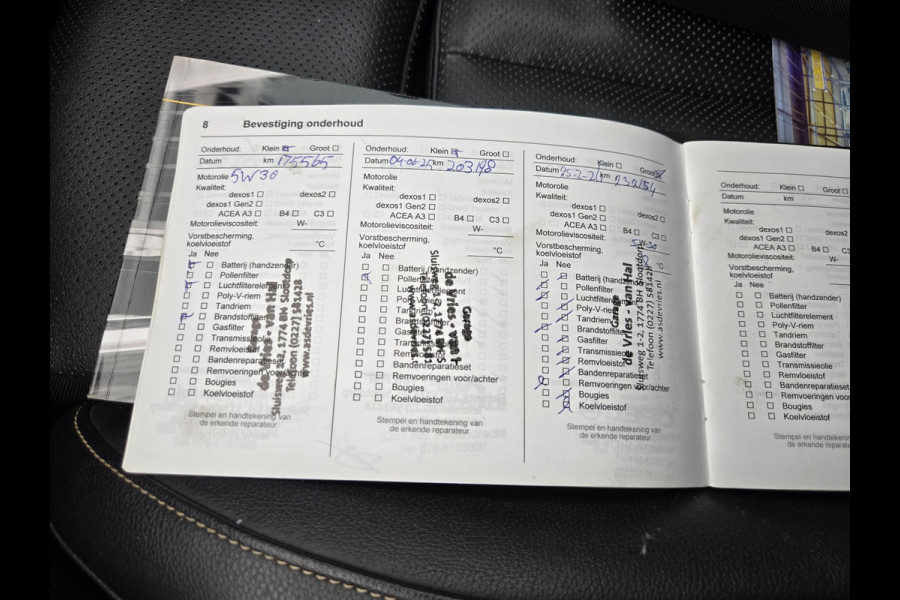 8 Bevestiging onderhoud
Onderhoud: Klein Groot
Datum km 175565
Motorolie 5W30
Kwaliteit:
dexos1 dexos2
dexos1 Gen2
ACEA A3 B4 C3
Motorolieviscositeit: W-
Vorstbescherming,
koelvloeistof °C
Ja Nee
Batterij (handzender)
Pollenfilter
Luchtfilterelement
Poly-V-riem
Tandriem
Brandstoffilter
Gasfilter
Transmissieolie
Remvloeistof
Bandenreparatieset
Remvoeringen voor/achter
Bougies
Koelvloeistof
Garage
de Vries - van Hal
Sluisweg 1-2, 1774 BH Slootdorp
Telefoon (0227) 581428
www.asdevries.nl
Stempel en handtekening van
de erkende reparateur
Onderhoud: Klein Groot
Datum 04-06-25 km 203198
Motorolie
Kwaliteit:
dexos1 dexos2
dexos1 Gen2
ACEA A3 B4 C3
Motorolieviscositeit: W-
Vorstbescherming,
koelvloeistof °C
Ja Nee
Batterij (handzender)
Pollenfilter
Luchtfilterelement
Poly-V-riem
Tandriem
Brandstoffilter
Gasfilter
Transmissieolie
Remvloeistof
Bandenreparatieset
Remvoeringen voor/achter
Bougies
Koelvloeistof
Garage
de Vries - van
Sluisweg 1-2, 1774 BH S
Telefoon (0227) 581
www.asdevries
Stempel en handtekening van
de erkende reparateur
Onderhoud: Klein Groot
Datum km 232154
Motorolie
Kwaliteit:
dexos1 dexos2
dexos1 Gen2
ACEA A3 B4 C3
Motorolieviscositeit: 5W-30
Vorstbescherming,
koelvloeistof °C
Ja Nee
Batterij (handzender)
Pollenfilter
Luchtfilterelement
Poly-V-riem
Tandriem
Brandstoffilter
Gasfilter
Transmissieolie
Remvloeistof
Bandenreparatieset
Remvoeringen voor/achter
Bougies
Koelvloeistof
Garage
de Vries - van Hal
Sluisweg 1-2, 1774 BH Slootdorp
Telefoon (0227) 581428
www.asdevries.nl
Stempel en handtekening van
de erkende reparateur
Onderhoud: Klein Groot
Datum km
Motorolie
Kwaliteit:
dexos1 dexos2
dexos1 Gen2
ACEA A3 B4 C3
Motorolieviscositeit: W-
Vorstbescherming,
koelvloeistof
Ja Nee
Batterij (handzender)
Pollenfilter
Luchtfilterelement
Poly-V-riem
Tandriem
Brandstoffilter
Gasfilter
Transmissieolie
Remvloeistof
Bandenreparatieset
Remvoeringen voor
Bougies
Koelvloeistof
Stempel en handtekening
de erkende reparateur